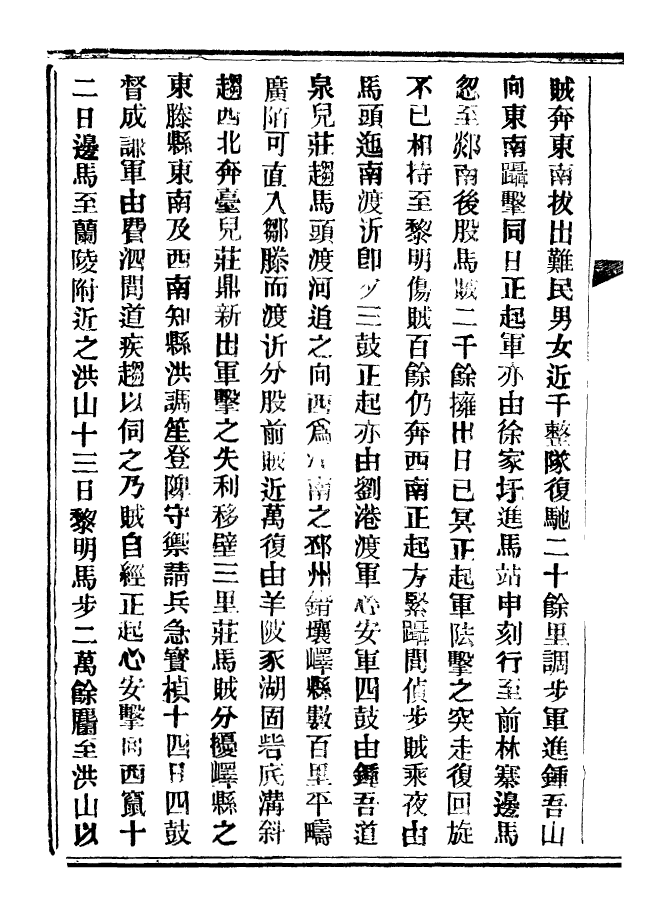 賊奔東南拔出難民男女近千整隊復馳二十餘里調步軍進鍾吾山
向東南躡擊同日正起軍亦由徐家圩進馬站申刻行至前林寨邊馬
忽至郯南後股馬賊二千餘擁出日已冥正起軍陡擊之突走復回旋
不已相持至黎明傷賊百餘仍奔西南正起方緊躡間偵步賊乘夜由
馬頭迤南渡沂即夕三鼓正起亦由劉港渡軍心安軍四鼓由鍾吾道
泉兒莊趨馬頭渡河追之向西爲江南之邳州錯壤嶧縣數百里平疇
廣陌可直入鄒滕而渡沂分股前賊近萬復由羊陂豕湖固砦底溝斜
趨西北奔臺兒莊鼎新出軍擊之失利移壁三里莊馬賊分擾嶧縣之
東滕縣東南及西南知縣洪調笙登陴守禦請兵急寶楨十四日四鼓
督成謙軍由費泗間道疾趨以伺之乃賊自經正起心安擊向西竄十
二日邊馬至蘭陵附近之洪山十三日黎明馬步二萬餘麕至洪山以